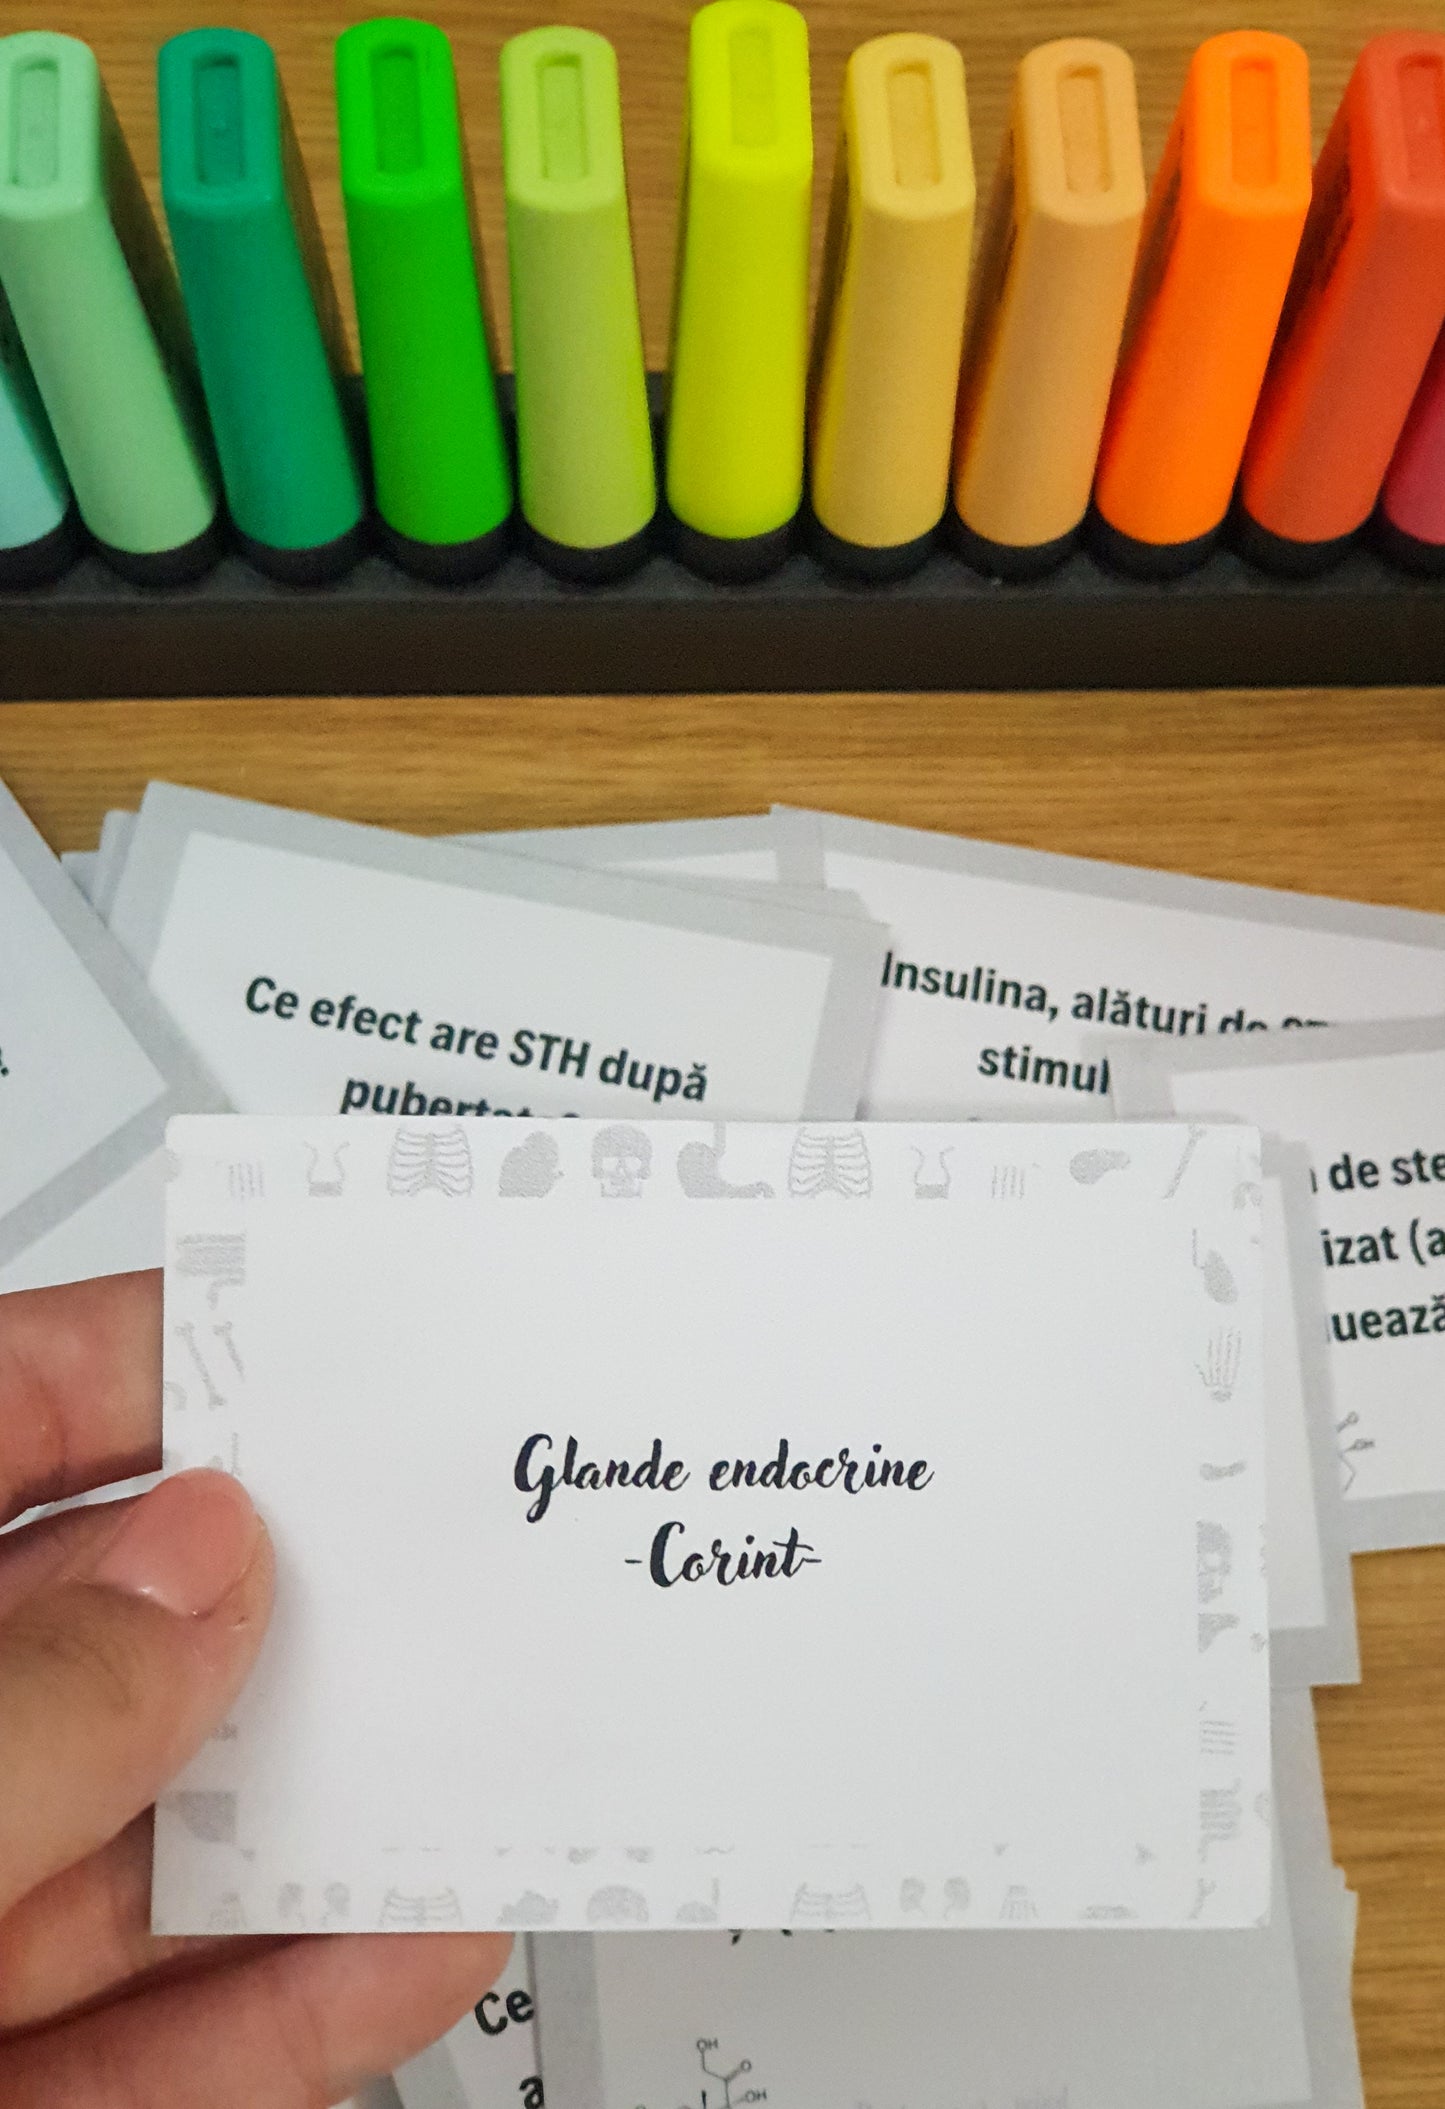 Ce efect are STH după
Insulina, alături de
stimul
de ste
izat (a
uează
Glande endocrine
-Corint-
Ce
a
OH
O
OH